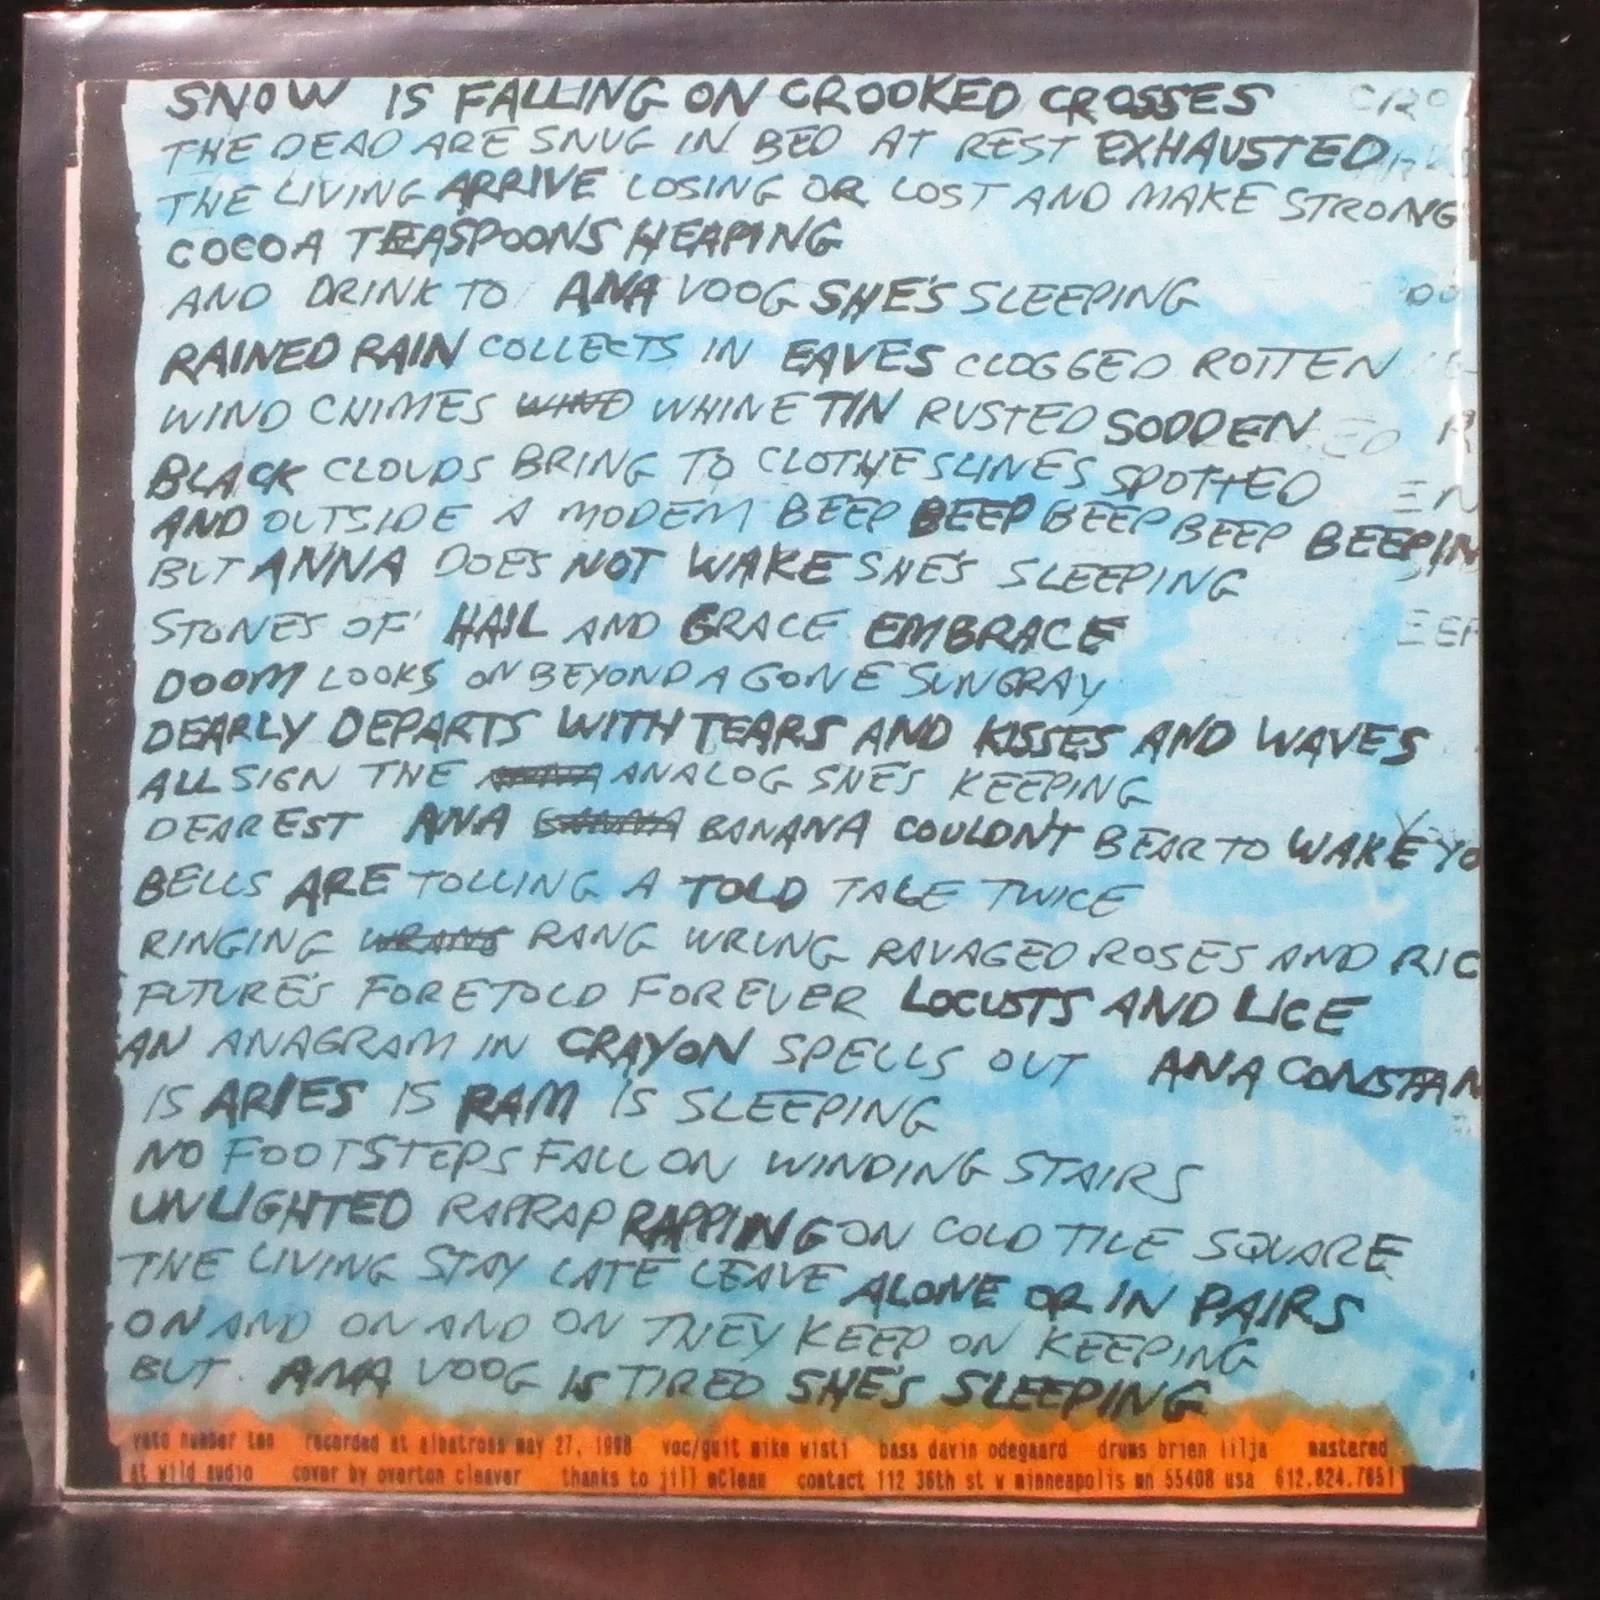 SNOW IS FALLING ON CROOKED CROSSES
THE DEAD ARE SNUG IN BED AT REST EXHAUSTED
THE LIVING ARRIVE LOSING OR LOST AND MAKE STRONG
COCOA TEASPOONS HEAPING
AND DRINK TO ANA VOOG SHE'S SLEEPING
RAINED RAIN COLLECTS IN EAVES CLOGGED ROTTEN
WIND CHIMES WIND WHINE TIN RUSTED SODDEN
BLACK CLOUDS BRING TO CLOTHESLINES SPOTTED
AND OUTSIDE A MODEM BEEP BEEP BEEP BEEP BEEPIN
BUT ANNA DOES NOT WAKE SHE'S SLEEPING
STONES OF HAIL AND GRACE EMBRACE
DOOM LOOKS ON BEYOND A GONE SUNGRAY
DEARLY DEPARTS WITH TEARS AND KISSES AND WAVES
ALL SIGN THE ANALOG SHE'S KEEPING
DEAREST ANA BANANA COULDN'T BEAR TO WAKE YO
BELLS ARE TOLLING A TOLD TALE TWICE
RINGING WRANG RANG WRUNG RAVAGED ROSES AND RIC
FUTURE'S FORETOLD FOREVER LOCUSTS AND LICE
AN ANAGRAM IN CRAYON SPELLS OUT ANA CONSTAN
IS ARIES IS RAM IS SLEEPING
NO FOOTSTEPS FALL ON WINDING STAIRS
UNLIGHTED RAPRAP RAPPING ON COLD TILE SQUARE
THE LIVING STAY LATE LEAVE ALONE OR IN PAIRS
ON AND ON AND ON THEY KEEP ON KEEPING
BUT ANA VOOG IS TIRED SHE'S SLEEPING
veto number ten recorded at albatross may 27, 1998 voc/guit mike wisti bass davin odegaard drums brien lilja mastered
at wild audio cover by overton cleaver thanks to jill mclean contact 112 36th st w minneapolis mn 55408 usa 612.824.7651